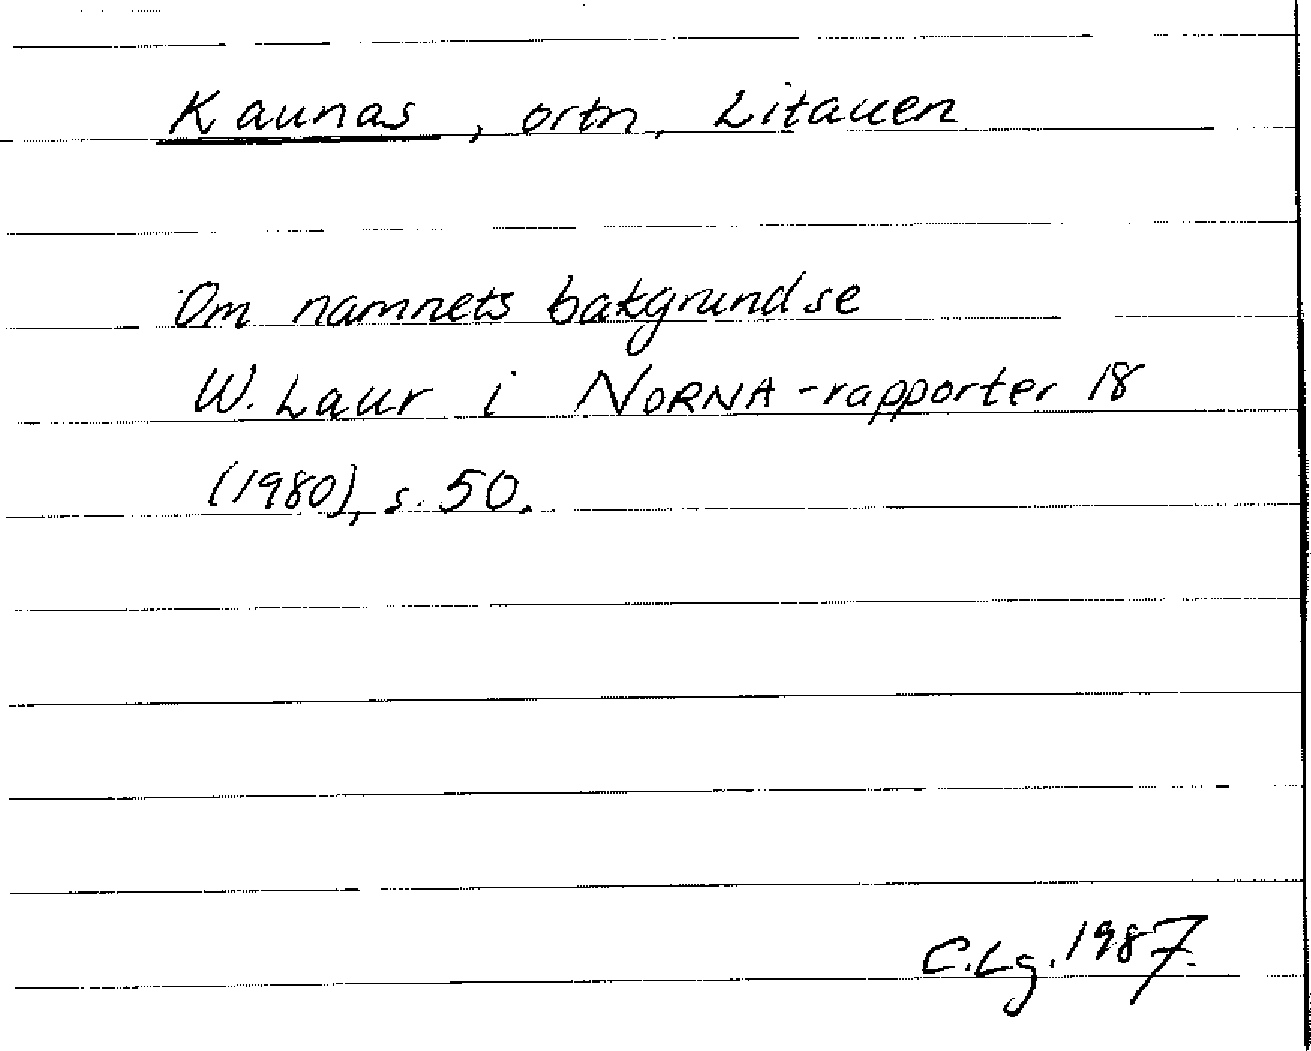 Kaunas, ortn, Litauen
Om namnets bakgrund se
W. Laur i NORNA-rapporter 18
(1980), s. 50.
C.Lg. 1987.